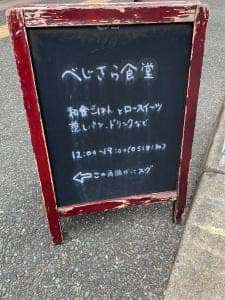 べじさら食堂
和食ごはん とロースイーツ
蒸しパン、ドリンクなど
12:00〜19:00(OS18:30)
⇦この
スグ